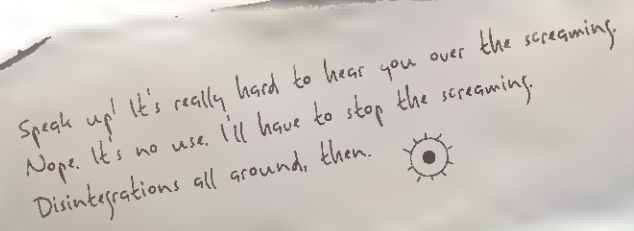 Speak up! It's really hard to hear you over the screaming.
Nope. It's no use. I'll have to stop the screaming.
Disintegrations all around, then.